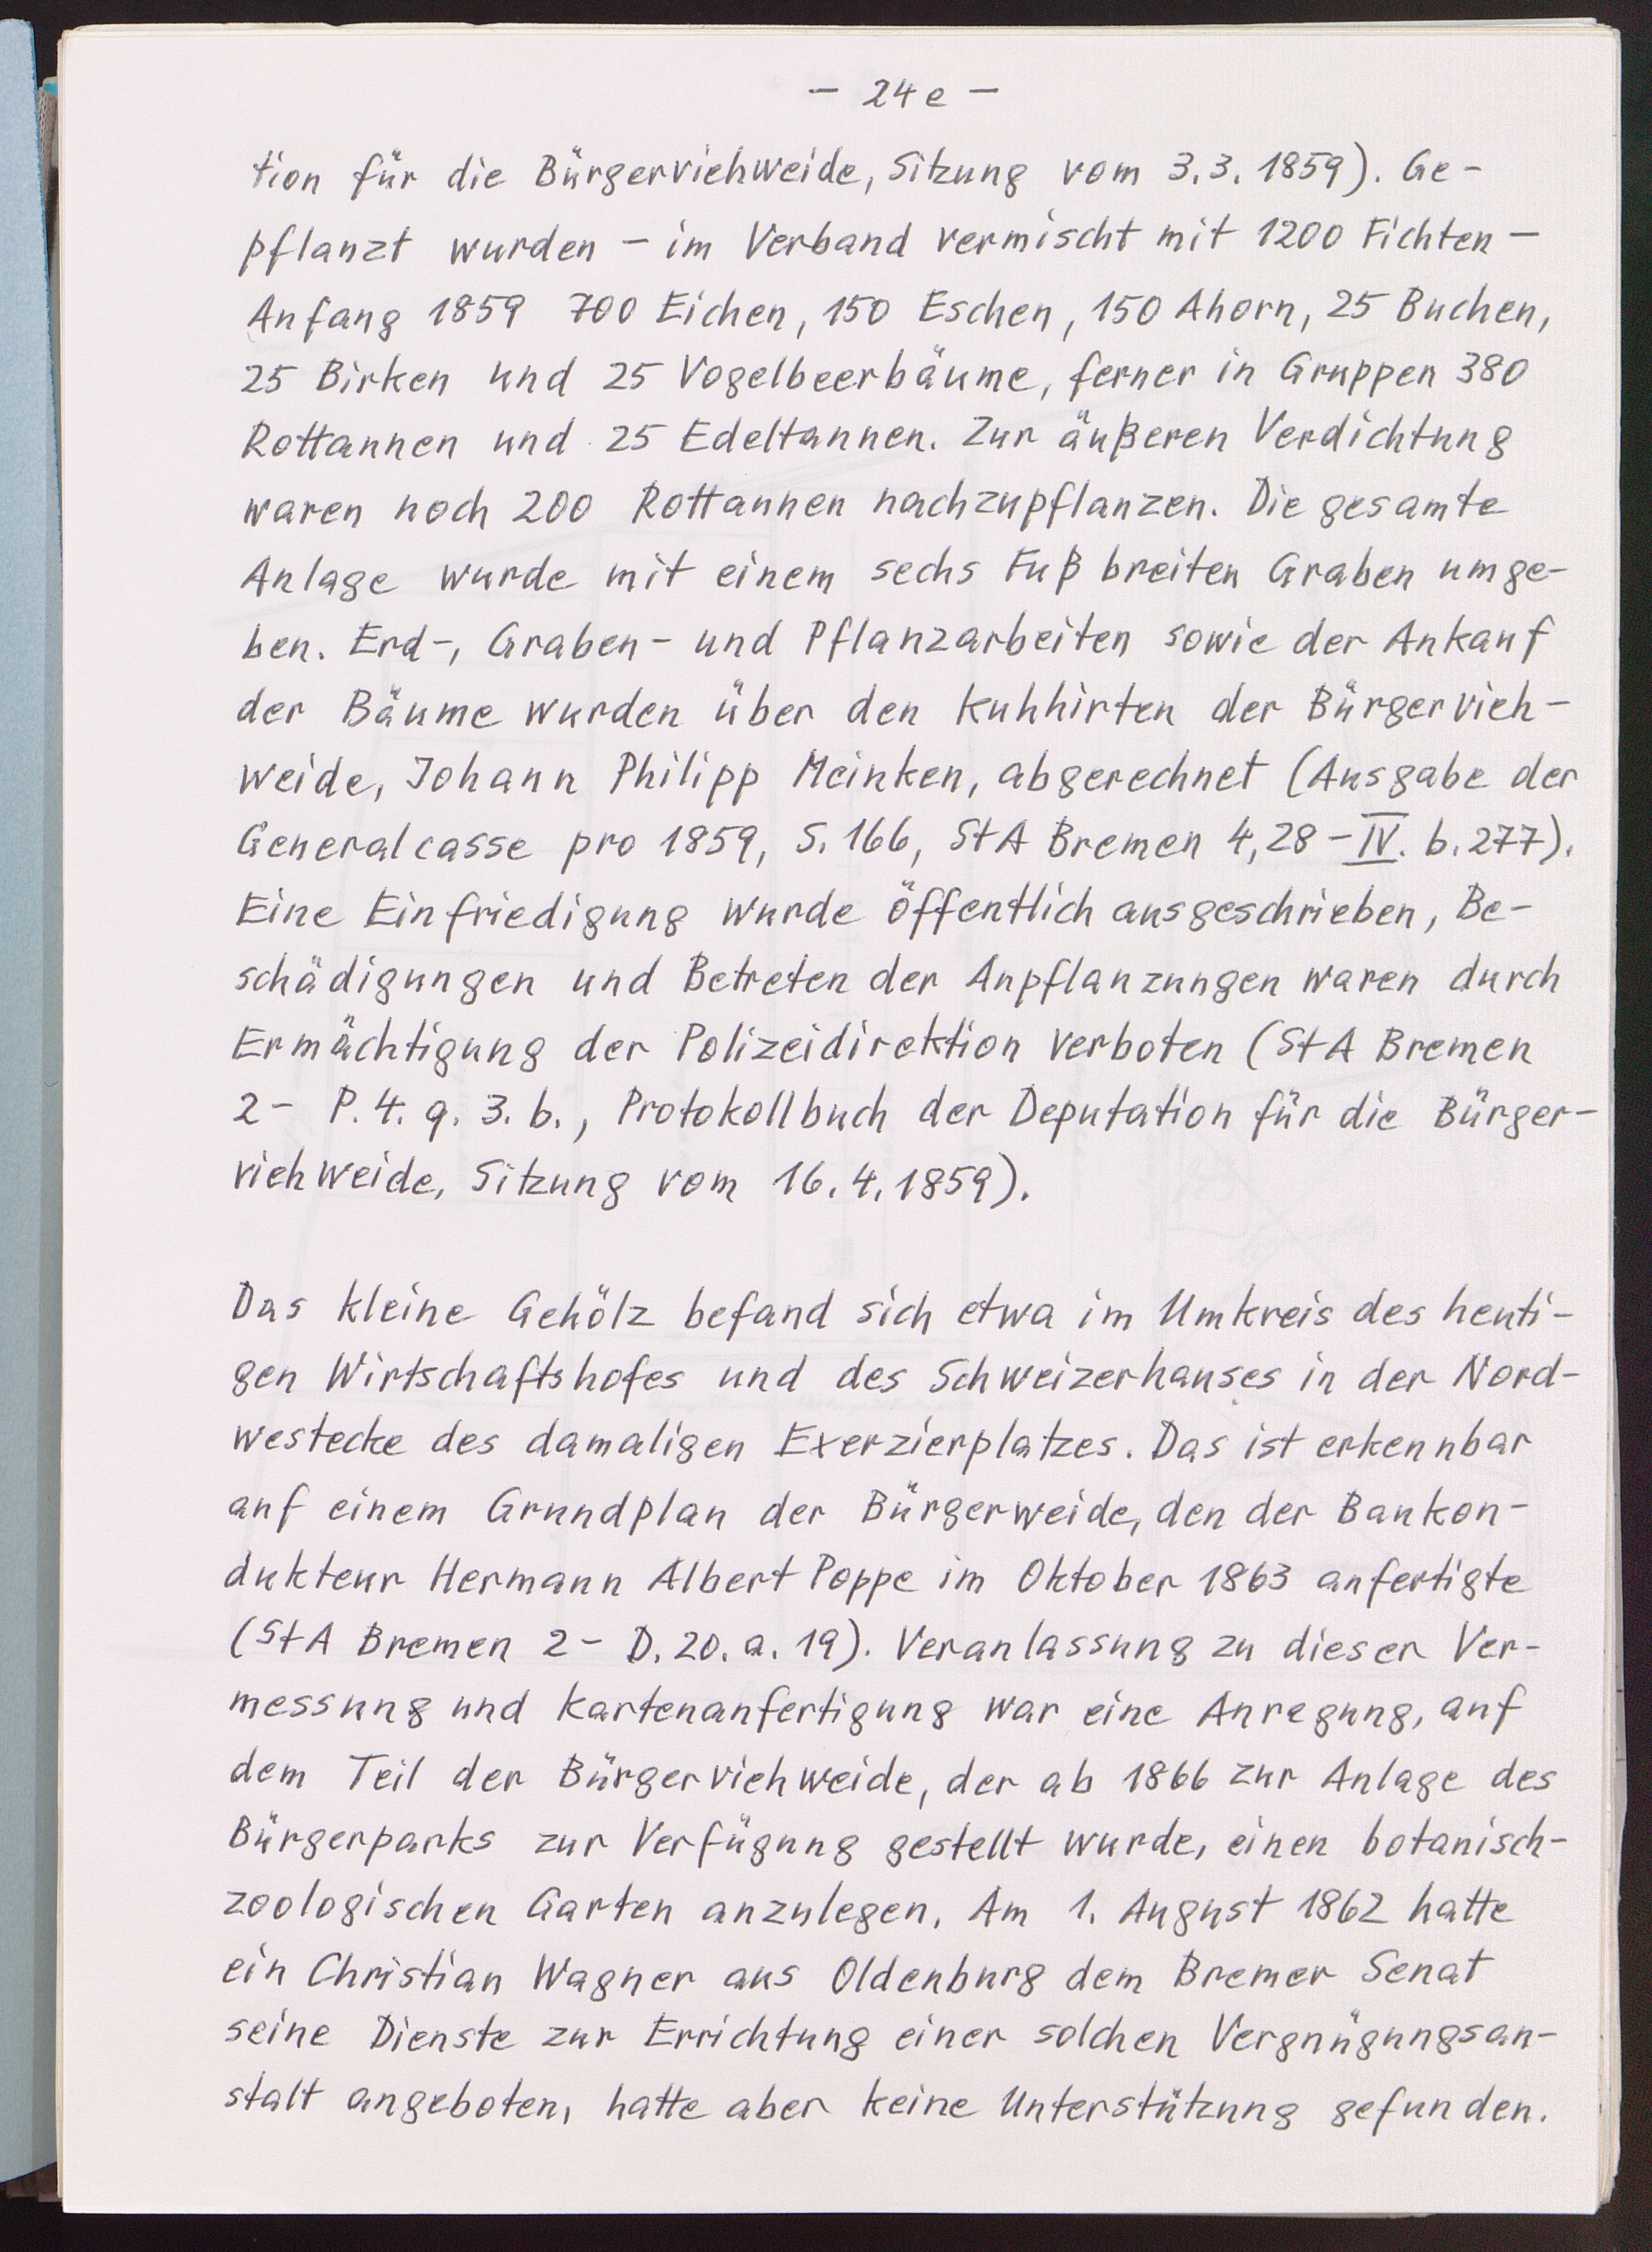 – 24e –
tion für die Bürgerviehweide, Sitzung vom 3.3.1859). Ge-
pflanzt wurden – im Verband vermischt mit 1200 Fichten –
Anfang 1859 700 Eichen, 150 Eschen, 150 Ahorn, 25 Buchen,
25 Birken und 25 Vogelbeerbäume, ferner in Gruppen 380
Rottannen und 25 Edeltannen. Zur äußeren Verdichtung
waren noch 200 Rottannen nachzupflanzen. Die gesamte
Anlage wurde mit einem sechs Fuß breiten Graben umge-
ben. Erd-, Graben- und Pflanzarbeiten sowie der Ankauf
der Bäume wurden über den Kuhhirten der Bürgervieh-
weide, Johann Philipp Meinken, abgerechnet (Ausgabe der
Generalcasse pro 1859, S. 166, StA Bremen 4,28 – IV. b. 277).
Eine Einfriedigung wurde öffentlich ausgeschrieben, Be-
schädigungen und Betreten der Anpflanzungen waren durch
Ermächtigung der Polizeidirektion verboten (StA Bremen
2 – P. 4. q. 3. b., Protokollbuch der Deputation für die Bürger-
viehweide, Sitzung vom 16.4.1859).
Das kleine Gehölz befand sich etwa im Umkreis des heuti-
gen Wirtschaftshofes und des Schweizerhauses in der Nord-
westecke des damaligen Exerzierplatzes. Das ist erkennbar
auf einem Grundplan der Bürgerweide, den der Baukon-
dukteur Hermann Albert Poppe im Oktober 1863 anfertigte
(StA Bremen 2 – D. 20. a. 19). Veranlassung zu dieser Ver-
messung und Kartenanfertigung war eine Anregung, auf
dem Teil der Bürgerviehweide, der ab 1866 zur Anlage des
Bürgerparks zur Verfügung gestellt wurde, einen botanisch-
zoologischen Garten anzulegen. Am 1. August 1862 hatte
ein Christian Wagner aus Oldenburg dem Bremer Senat
seine Dienste zur Errichtung einer solchen Vergnügungsan-
stalt angeboten, hatte aber keine Unterstützung gefunden.